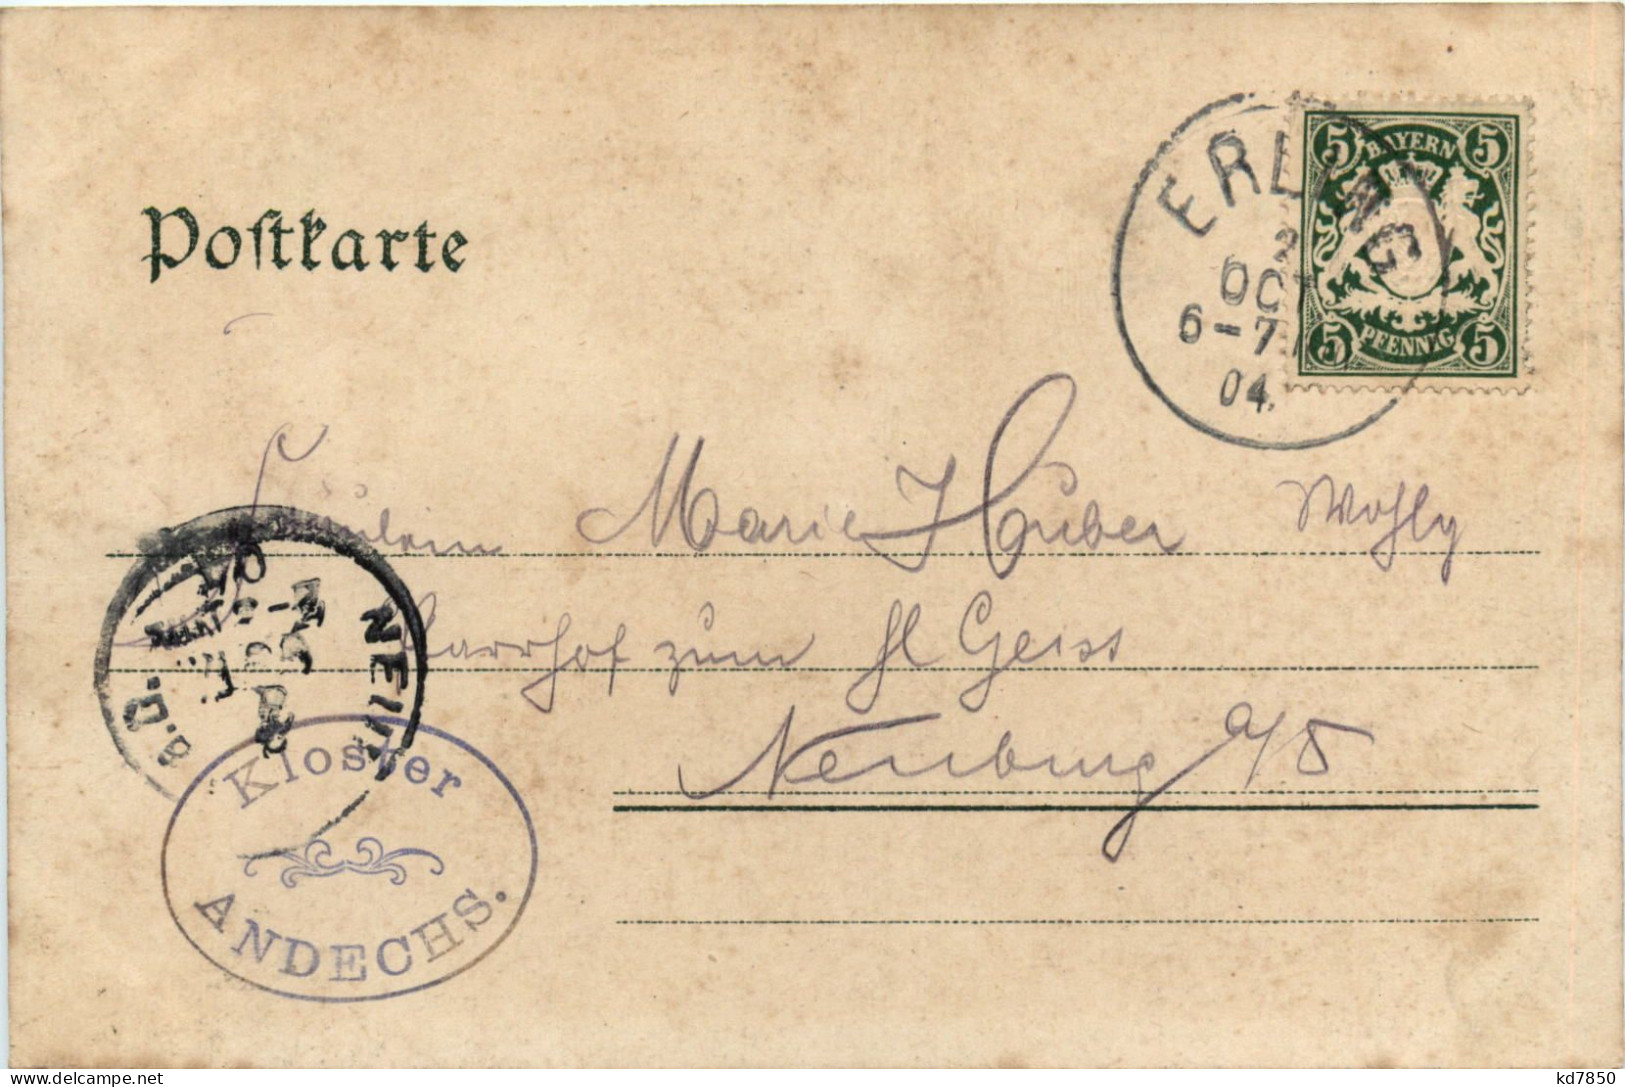 Postkarte
ERLING
2
OCT
6-7
04.
BAYERN
5 5
5 5
PFENNIG
Fräulein Marie Huber Wohlg
Pfarrhof zum hl Geist
Neuburg a/D
04
Kloster
ANDECHS.
delcampe.net
kd7850